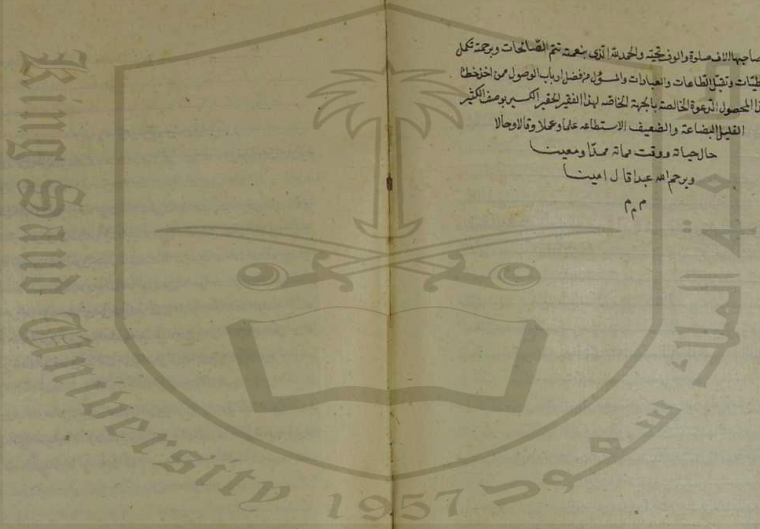 صاحبها الاف صلوة والوف تحية والحمدلله الذى بنعمته تتم الصالحات وبرحمته تكمل
الطيبات وتقبل الطاعات والعبادات والمسؤل من فضل ارباب الوصول ممن اخذ حظا
المحصول الدعوة الخالصة بالجهة الخاصه لهذا الفقير الحقير الكسير بوصف الكثير
القليل البضاعة والضعيف الاستطاعه علما وعملا وقالا وحالا
حال حياته ووقت مماته ممدا ومعينا
ويرحم الله عبدا قال امينا
م م م
King Saud University
جامعة الملك سعود
1957